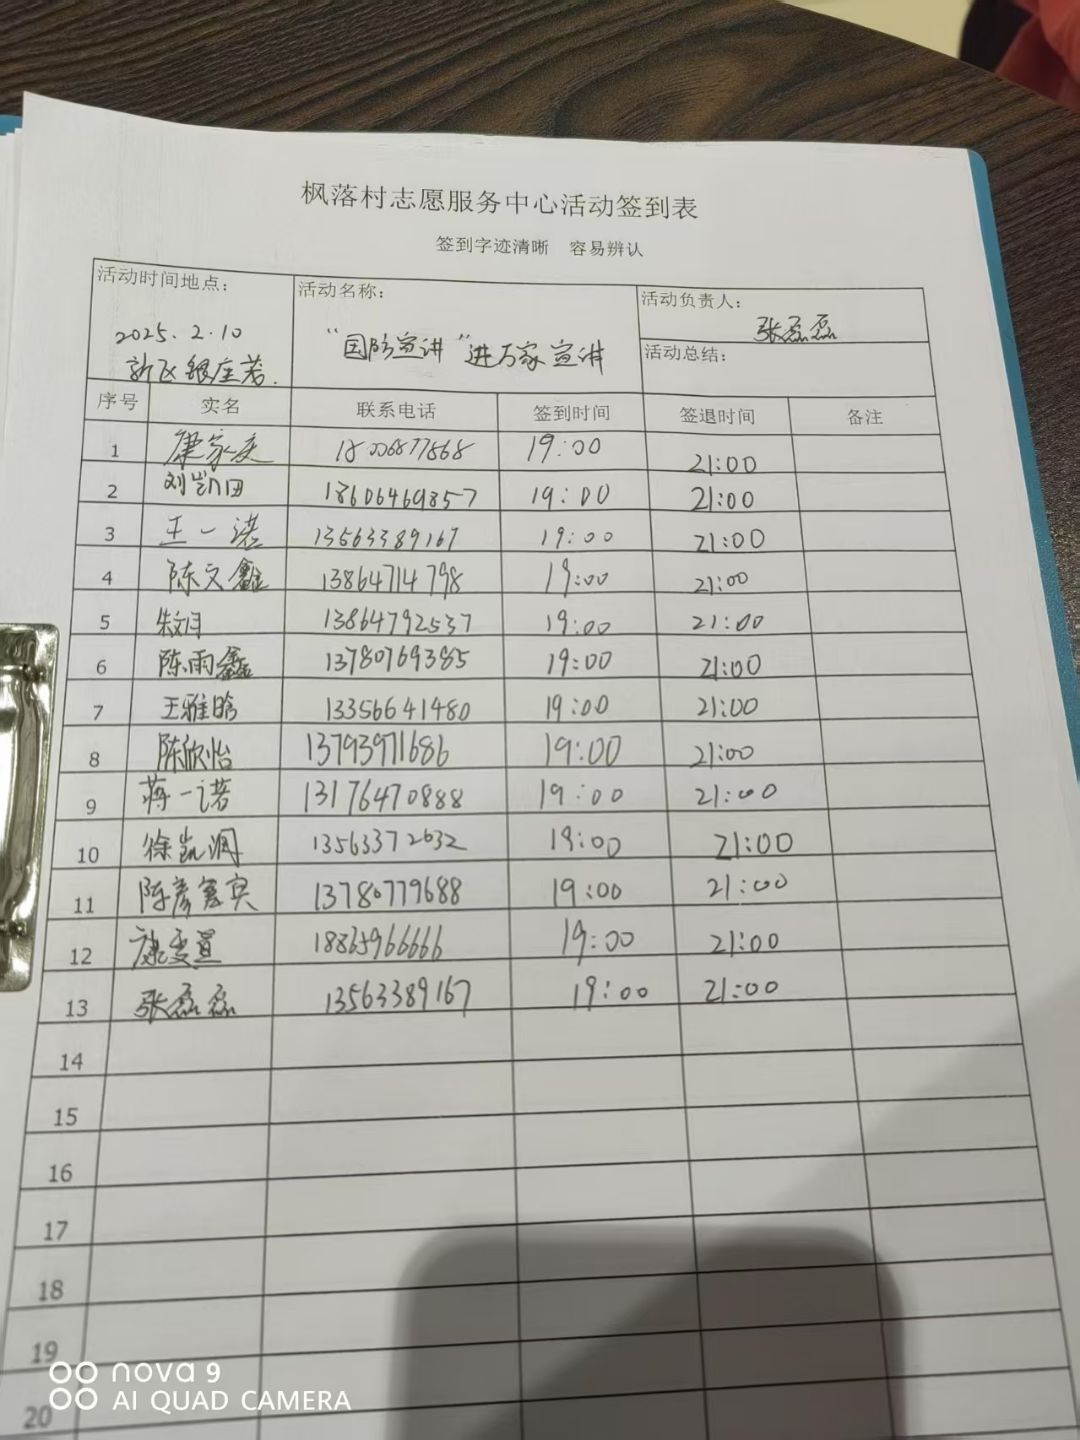 枫落村志愿服务中心活动签到表
签到字迹清晰 容易辨认
活动时间地点： 活动名称： 活动负责人：
2025.2.10 张磊磊
新区银座 “国防宣讲”进万家宣讲 活动总结：
序号 实名 联系电话 签到时间 签退时间 备注
1 康家 18006877568 19:00 21:00
2 刘凯田 18606469857 19:00 21:00
3 王一诺 13563389167 19:00 21:00
4 陈文鑫 13864714798 19:00 21:00
5 13864792537 19:00 21:00
6 陈雨鑫 13780769385 19:00 21:00
7 王雅晗 13356641480 19:00 21:00
8 陈欣怡 13793971686 19:00 21:00
9 蒋一诺 13176470888 19:00 21:00
10 徐凯润 13563372632 19:00 21:00
11 陈彦 13780779688 19:00 21:00
12 康 18865966666 19:00 21:00
13 张磊磊 13563389167 19:00 21:00
14
15
16
17
18
19
20
nova 9
AI QUAD CAMERA